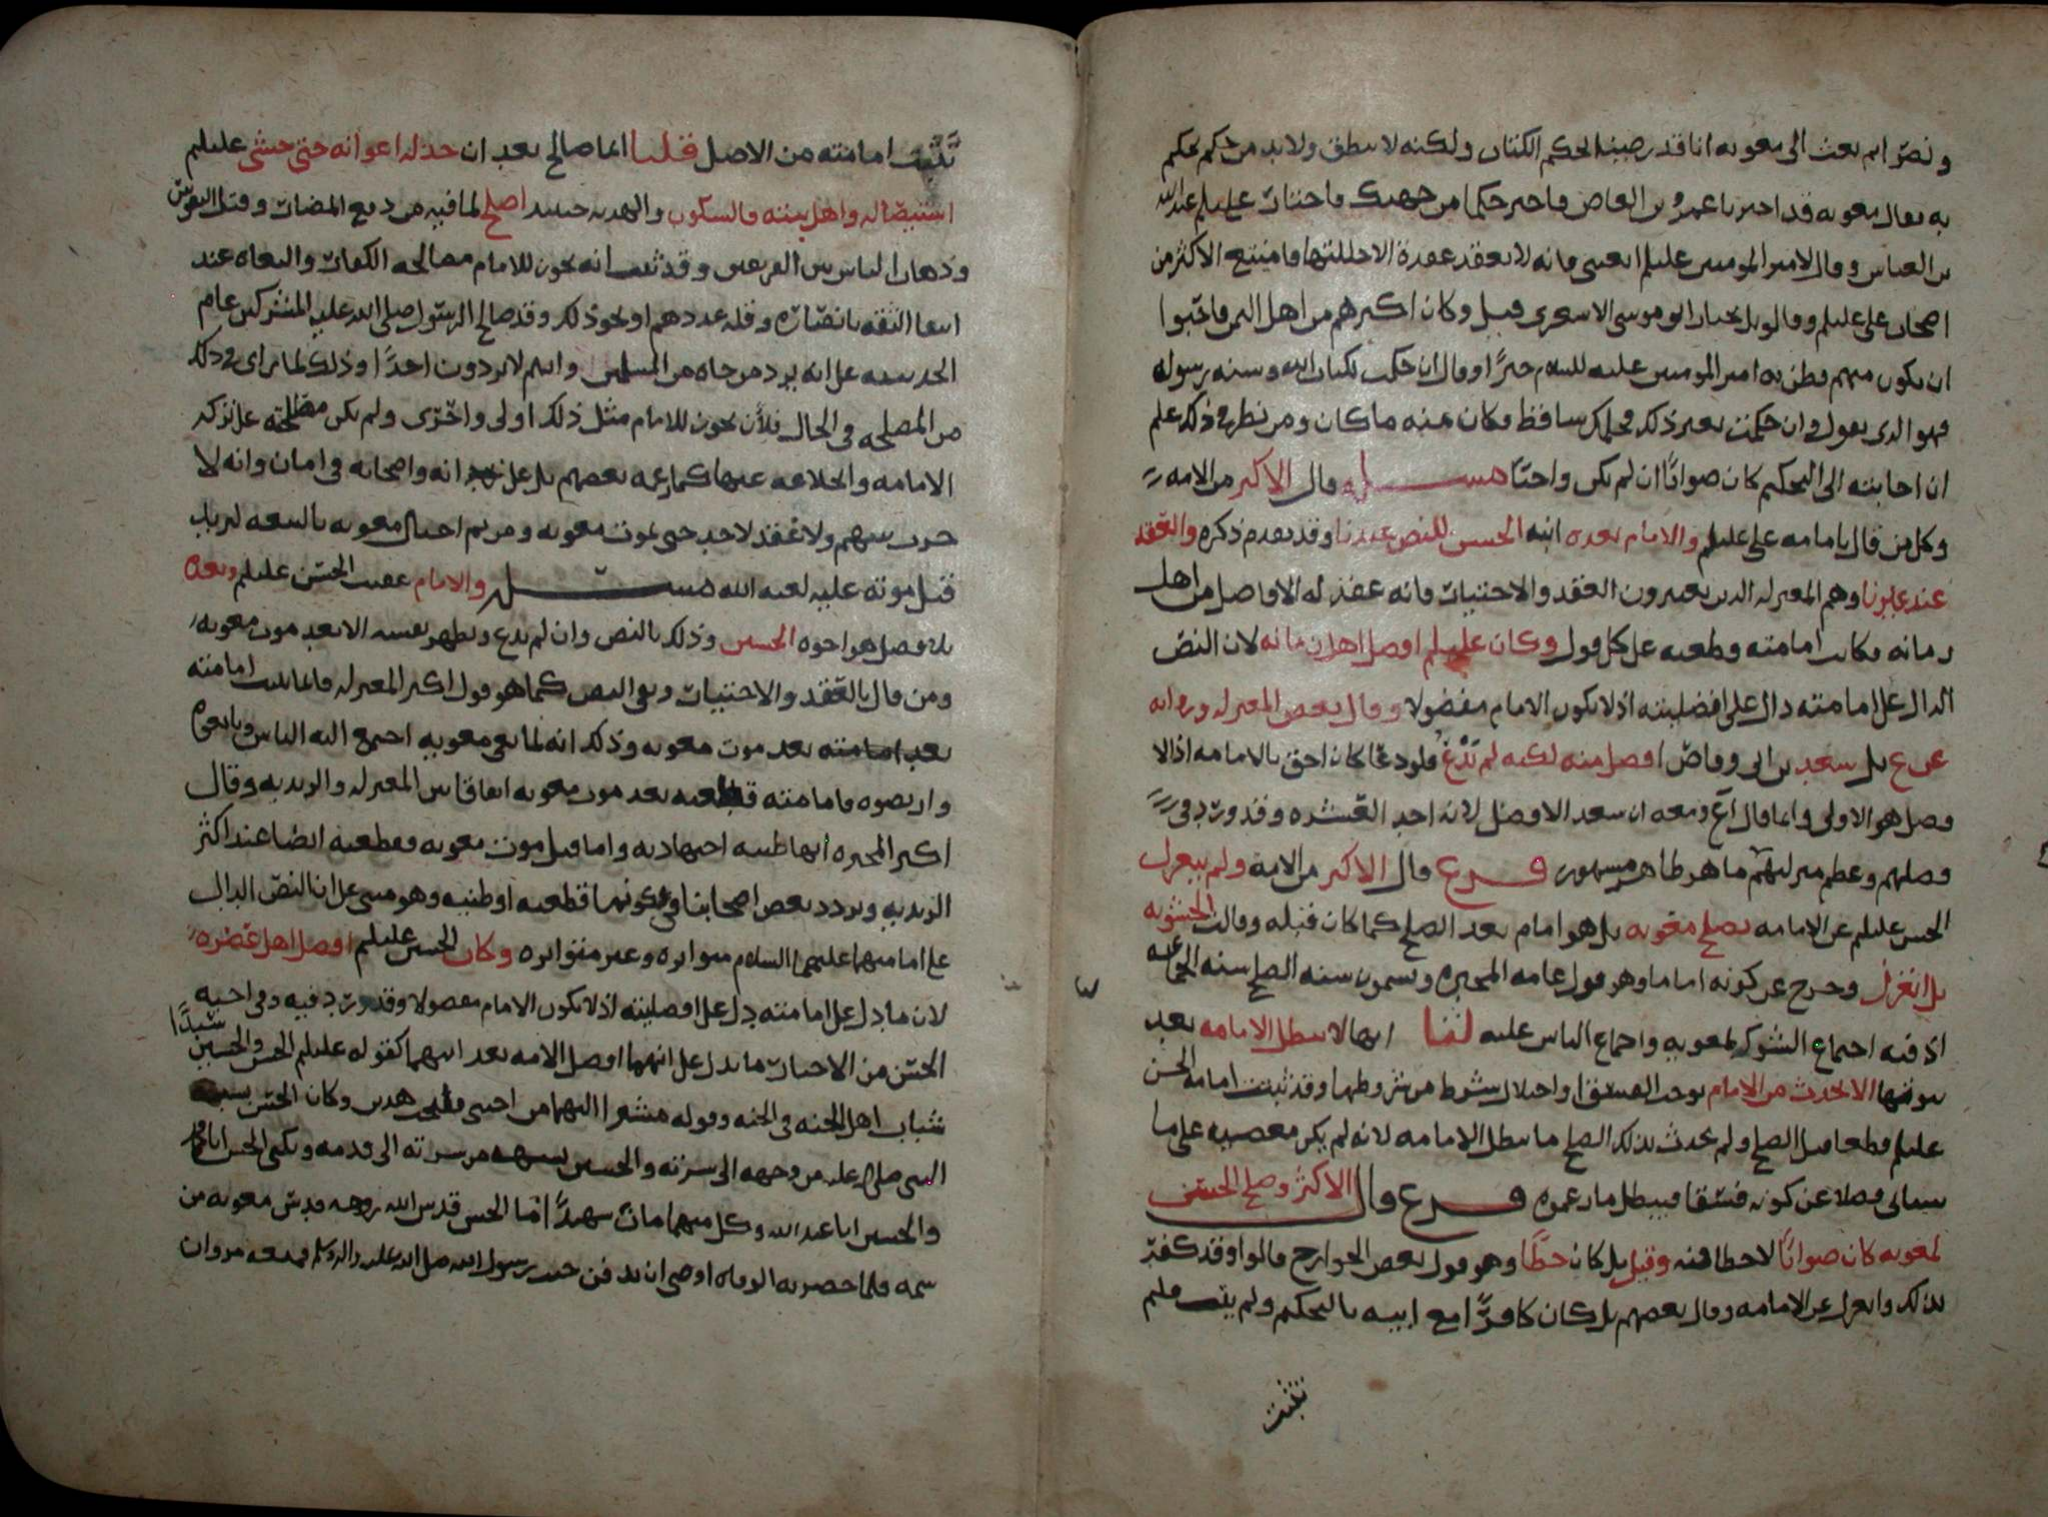 ونصرائهم بعث الى معويه انا قد رضينا بحكم الكتاب ولكنه لا ينطق ولابد من حكم يحكم
به فقال معويه قد اخترنا عمرو بن العاص فاختر حكما من جهتك فاختار علي علم عبدالله
بن العباس وقال لامير المومنين علم ابعثني فانه لا يعقد عقدة الا حللتها فامتنع الاكثر من
اصحاب علي علم وقالوا بل نختار ابو موسى الاشعري قيل وكان اكبرهم من اهل اليمن فاحبوا
ان يكون منهم فظن به امير المومنين عليه السلام خيرًا وقال ان حكمت بكتاب الله وسنه رسوله
فهو الذي نقول وان حكمت بغير ذلك فحكمك ساقط فكان منه ما كان ومن نظر في ذلك علم
ان اجابته الى التحكيم كان صوابًا ان لم يكن واجبًا مسـله وقال الاكثر من الامه
وكل من قال بامامه علي علم والامام بعده ابنه الحسن للنص عندنا وقد تقدم ذكره والعقد
عند غيرنا وهم المعتزله الذين يعتبرون العقد والاختيار فانه عقد له الافاضل من اهل
زمانه فكانت امامته قطعيه على كل قول وكان علم افضل اهل زمانه لان النص
الدال على امامته دال على افضليته اذ لا يكون الامام مفضولا وقال بعض المعتزله وروايه
عن ع بل سعد بن ابي وقاص افضل منه لكنه لم يدع فلو دعا كان احق بالامامه اذ الا
فضل هو الاولى وانما قال ع ومعه ان سعد الافضل لانه احد العشره وقد ورد في
فضلهم وعظم منزلتهم ما هو ظاهر مشهور فـرع قال الاكثر من الامه ولم ينعزل
الحسن علم عن الامامه بصلح معويه بل هو امام بعد الصلح كما كان قبله وقالت الحشويه
بل انعزل وخرج عن كونه اماما وهو قول عامه المجبره ويسمون سنه الصلح سنه الجماعه
اذ فيه اجتماع الشوكه لمعويه واجماع الناس عليه لنـا انها لا تبطل الامامه بعد
ثبوتها الا لحدث من الامام يوجب الفسق او اختلال شرط من شروطها وقد ثبتت امامه الحسن
علم قطعا قبل الصلح ولم يحدث بذلك الصلح ما يبطل الامامه لانه لم يكن معصيه على ما
سياتي فضلا عن كونه فسقا فيبطل ما زعموه فـرع قال الاكثر وصلح الحسن
لمعويه كان صوابًا لا خطا فيه وقيل بل كان خطًا وهو قول بعض الخوارج قالوا وقد كفر
بذلك وانعزل عن الامامه وقال بعضهم بل كان كافرًا مع ابيه بالتحكيم ولم يثبت فلم
تثبت
تثبت امامته من الاصل قلنـا انما صالح بعد ان خذله اعوانه حتى خشي علم
استيصاله واهل بيته فالسكون والهدنه حينئذ اصلح لما فيه من دفع المضار وقتل النفوس
وذهاب الناس بين الفريقين وقد ثبت انه يجوز للامام مصالحه الكفار والبغاه عند
انتفا الثقه بانصاره وقله عددهم او نحو ذلك وقد صالح الرسول صلى الله عليه المشركين عام
الحديبيه على انه يرد من جاه من المسلمين وانهم لا يردون احدًا وذلك لما راى في ذلك
من المصلحه في الحال فلأن يجوز للامام مثل ذلك اولى واحرى ولم يكن مصالحته على تركه
الامامه والخلافه عنها كما زعمه بعضهم بل على انه واصحابه في امان وانه لا
حرب بينهم ولا عقد لاحد حتى يموت معويه ومن ثم احتال معويه بالبيعه ليزيد
قبل موته عليه لعنه الله مسـله والامام عقيب الحسن علم وبعده
بلا فصل هو اخوه الحسين وذلك بالنص وان لم يدع ويظهر نفسه الا بعد موت معويه
ومن قال بالعقد والاختيار ونفى النص كما هو قول اكثر المعتزله فانما ثبتت امامته
بعد موت معويه وذلك انه لما نعي معويه اجتمع اليه الناس وبايعوه
وارتضوه فامامته قطعيه بعد موت معويه اتفاقا بين المعتزله والزيديه وقال
اكثر المجبره انها ظنيه اجتهاديه واما قبل موت معويه فقطعيه ايضا عند اكثر
الزيديه وتردد بعض اصحابنا في كونها قطعيه او ظنيه وهو مبني على ان النص الدال
على امامتهما عليهما السلام متواتره وغير متواتره وكان الحسين علم افضل اهل عصره
لان ما دل على امامته دل على افضليته اذ لا يكون الامام مفضولا وقد ورد فيه وفي اخيه
الحسن من الاخبار ما يدل على انهما افضل الامه بعد ابيهما كقوله علم الحسن والحسين سيدا
شباب اهل الجنه في الجنه وقوله مشيرا اليهما من احبني فليحب هذين وكان الحسن يشبه
النبي صلى الله عليه من وجهه الى سرته والحسين يشبهه من سرته الى قدمه ويكنى الحسن ابا محمد
والحسين ابا عبدالله وكل منهما مات شهيدًا اما الحسن قدس الله روحه فدس معويه من
سمه فلما حضرته الوفاه اوصى ان يدفن جنب رسول الله صلى الله عليه واله وسلم فمنعه مروان